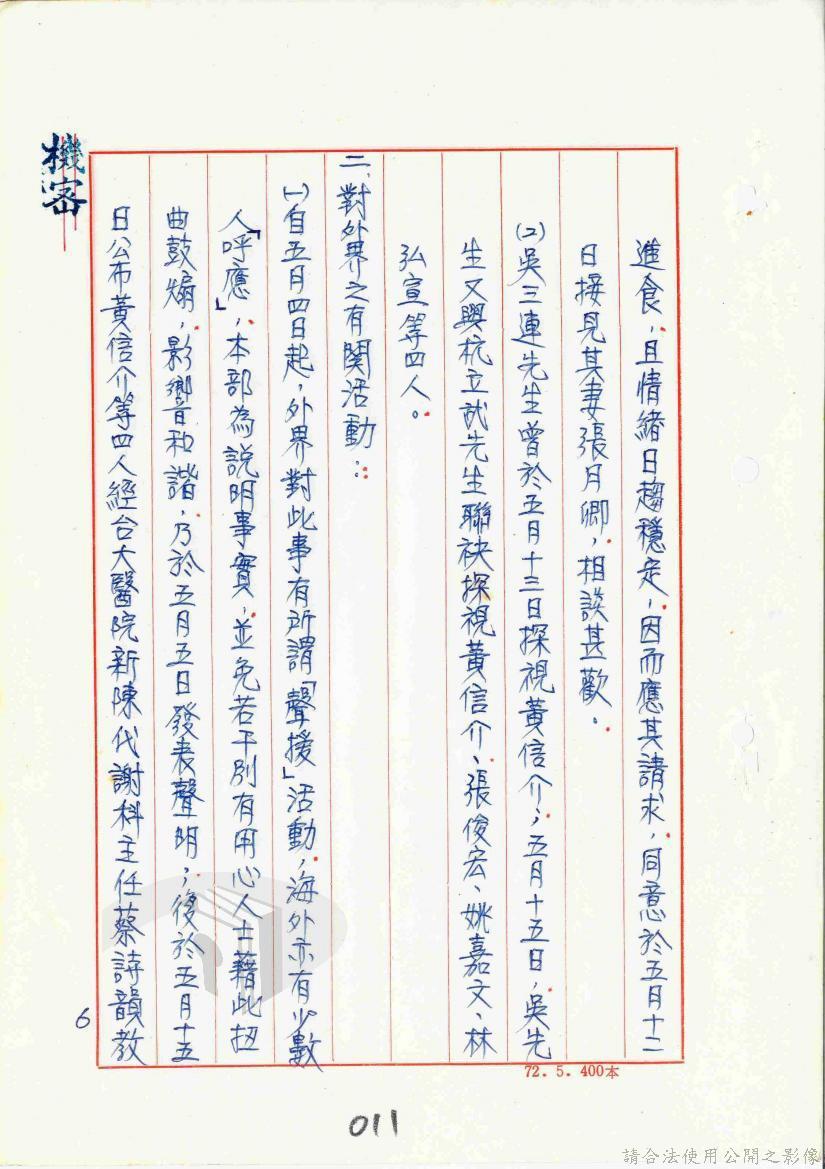 機密
進食，且情緒日趨穩定，因而應其請求，同意於五月十二
日接見其妻張月卿，相談甚歡。
(2)吳三連先生曾於五月十三日探視黃信介；五月十五日，吳先
生又與杭立武先生聯袂探視黃信介、張俊宏、姚嘉文、林
弘宣等四人。
二、對外界之有関活動：
(一)自五月四日起，外界對此事有所謂「聲援」活動，海外亦有少數
人「呼應」，本部為說明事實，並免若干別有用心人士藉此扭
曲鼓煽，影響和諧，乃於五月五日發表聲明；復於五月十五
日公布黃信介等四人經台大醫院新陳代謝科主任蔡詩韻教
6
72. 5. 400本
011
請合法使用公開之影像